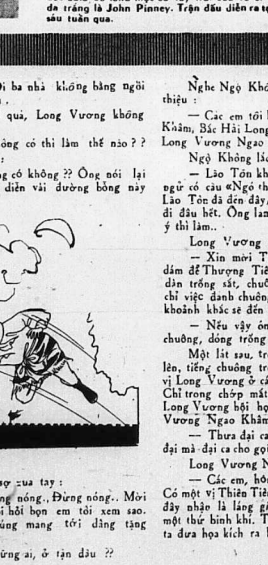 da trắng là John Pinney. Trận đấu diễn ra tại
sáu tuần qua.
ba nhà không bằng ngồi
quá, Long Vương không
có thì làm thế nào ? ?
có không ?? Ông nói lại
diễn vải đường bổng này
sợ qua tay :
nóng.. Đừng nóng.. Mời
hỏi bọn em tôi xem sao.
mang tới dâng tặng
ai, ở tận đâu ??
Nghe Ngộ
thiệu :
— Các em tôi
Khâm, Bắc Hải Long
Long Vương Ngao
Ngộ Không
— Lão Tôn
ngữ có câu «Ngó
Lão Tôn đã đến đây,
đi đâu hết. Ông
ý thì làm..
Long Vương
— Xin mời
dám để Thượng
dàn trống sắt,
chỉ việc đánh
khoảnh khắc sẽ đến
— Nếu vậy
chuông, dóng trống
Một lát sau,
lên, tiếng chuông
vị Long Vương ở
Chỉ trong chớp mắt
Long Vương hội
Vương Ngao Khâm
— Thưa đại ca
đại mà đại ca cho gọi
Long Vương
— Các em,
Có một vị Thiên
đây nhận là láng
một thứ binh khí.
ta đưa họa kích ra